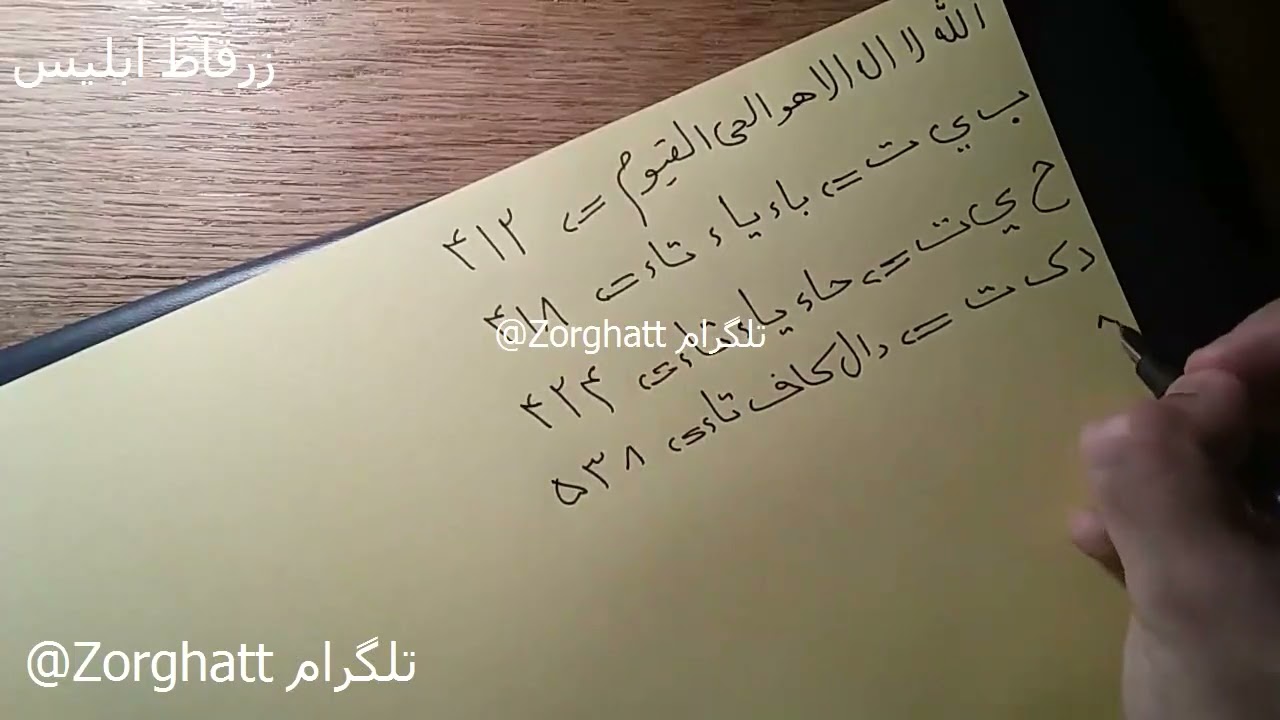 زرقاط ابلیس
الله لا ال الا هو الحی القیوم = ۴۱۲
ب ي ت = باء یاء تاء = ۴۱۸
ح ي ت = حاء یاء تاء = ۴۲۴
د ک ت = دال کاف تاء = ۵۳۸
@Zorghatt تلگرام
@Zorghatt تلگرام